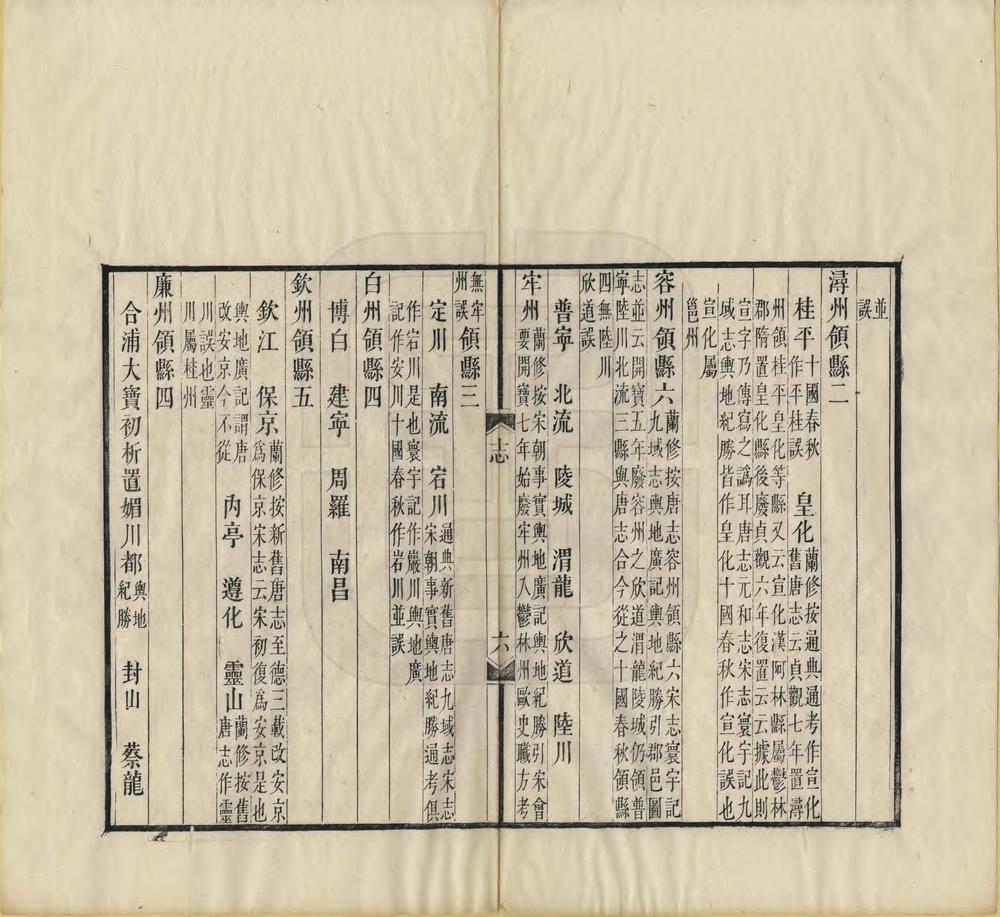 並
誤
潯州領縣二
桂平十國春秋作平桂誤　皇化蘭修按通典通考作宣化舊唐志云貞觀七年置潯
州領桂平皇化等縣又云宣化漢阿林縣屬鬱林
郡隋置皇化縣後廢貞觀六年復置云云據此則
宣字乃傳寫之譌耳唐志元和志宋志寰宇記九
域志輿地紀勝皆作皇化十國春秋作宣化誤也
宣化屬
邕州
容州領縣六蘭修按唐志容州領縣六宋志寰宇記九域志輿地廣記輿地紀勝引郡邑圖
志並云開寶五年廢容州之欣道渭龍陵城仍領普
寧陸川北流三縣與唐志合今從之十國春秋領縣
四無陸川
欣道誤
普寧　北流　陵城　渭龍　欣道　陸川
牢州蘭修按宋朝事實輿地廣記輿地紀勝引宋會要開寶七年始廢牢州入鬱林州歐史職方考
志　六
無牢州誤領縣三
定川　南流　宕川通典新舊唐志九域志宋志宋朝事實輿地紀勝通考俱
作宕川是也寰宇記作巖川輿地廣
記作安川十國春秋作岩川並誤
白州領縣四
博白　建寧　周羅　南昌
欽州領縣五
欽江　保京蘭修按新舊唐志至德三載改安京爲保京宋志云宋初復爲安京是也
輿地廣記謂唐改安京今不從　內亭　遵化　靈山蘭修按舊唐志作靈
川誤也靈
川屬桂州
廉州領縣四
合浦大寶初析置媚川都輿地紀勝　封山　蔡龍